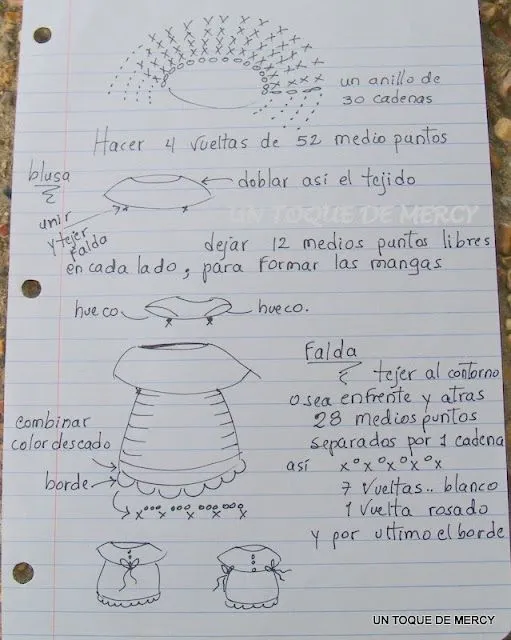 un anillo de
30 cadenas
Hacer 4 vueltas de 52 medio puntos
blusa
doblar asi el tejido
unir
y tejer
falda
UN TOQUE DE MERCY
dejar 12 medios puntos libres
en cada lado, para formar las mangas
hueco
hueco.
Falda
tejer al contorno
o sea enfrente y atras
28 medios puntos
separados por 1 cadena
así x°x°x°x°x
7 vueltas.. blanco
1 vuelta rosado
y por ultimo el borde
combinar
color descado
borde
x°°°x°°°x°°°x°°°x
UN TOQUE DE MERCY